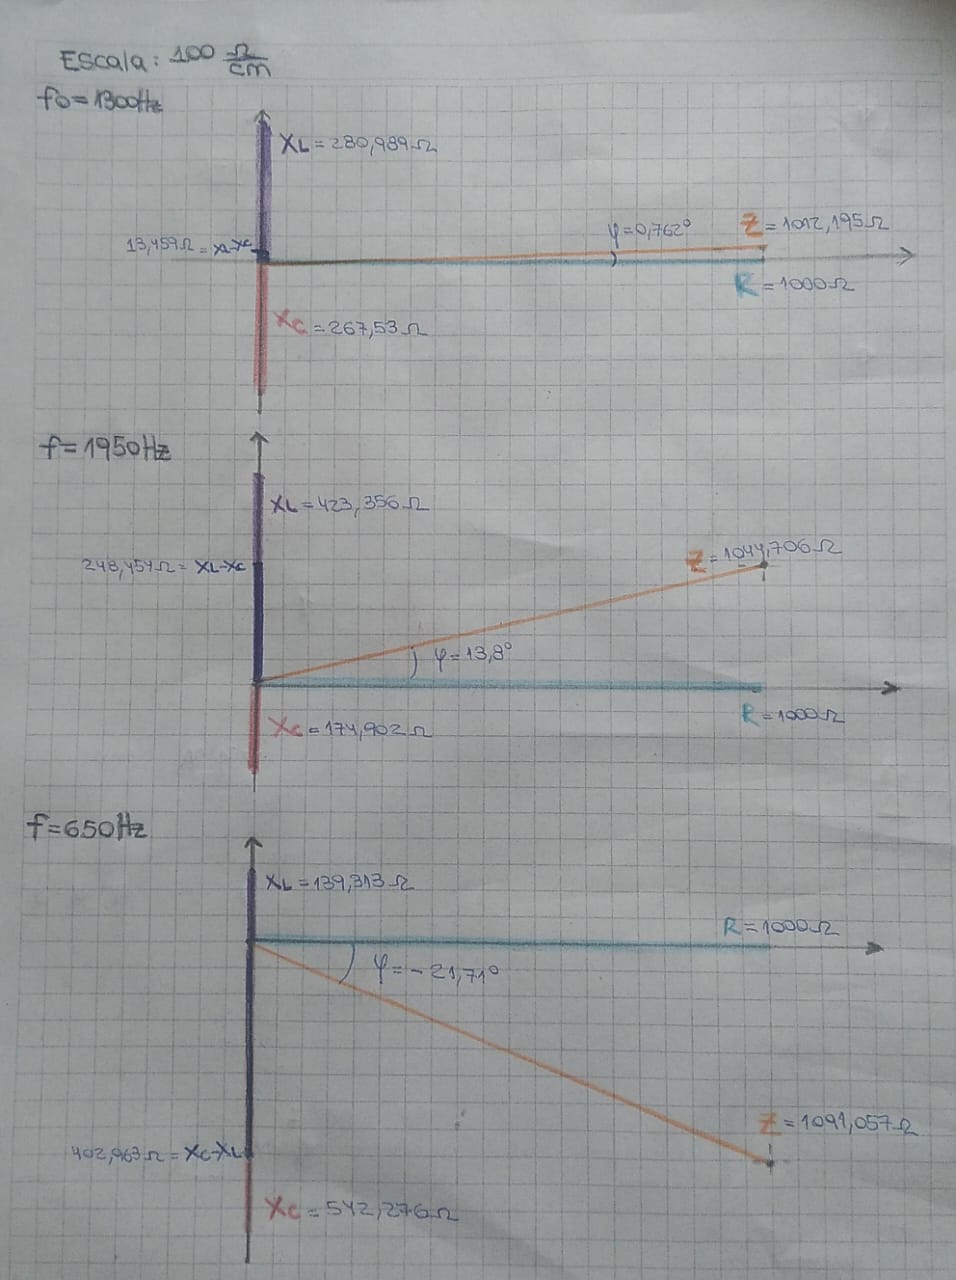 Escala: 100 Ω/cm
fo=1300Hz
XL=280,989Ω
13,459Ω=XL-XC
φ=0,762°
Z=1012,195Ω
R=1000Ω
XC=267,53Ω
f=1950Hz
XL=423,356Ω
248,454Ω=XL-XC
Z=1044,706Ω
φ=13,8°
R=1000Ω
XC=174,902Ω
f=650Hz
XL=139,313Ω
R=1000Ω
φ=-21,71°
Z=1091,057Ω
402,963Ω=XC-XL
XC=542,276Ω